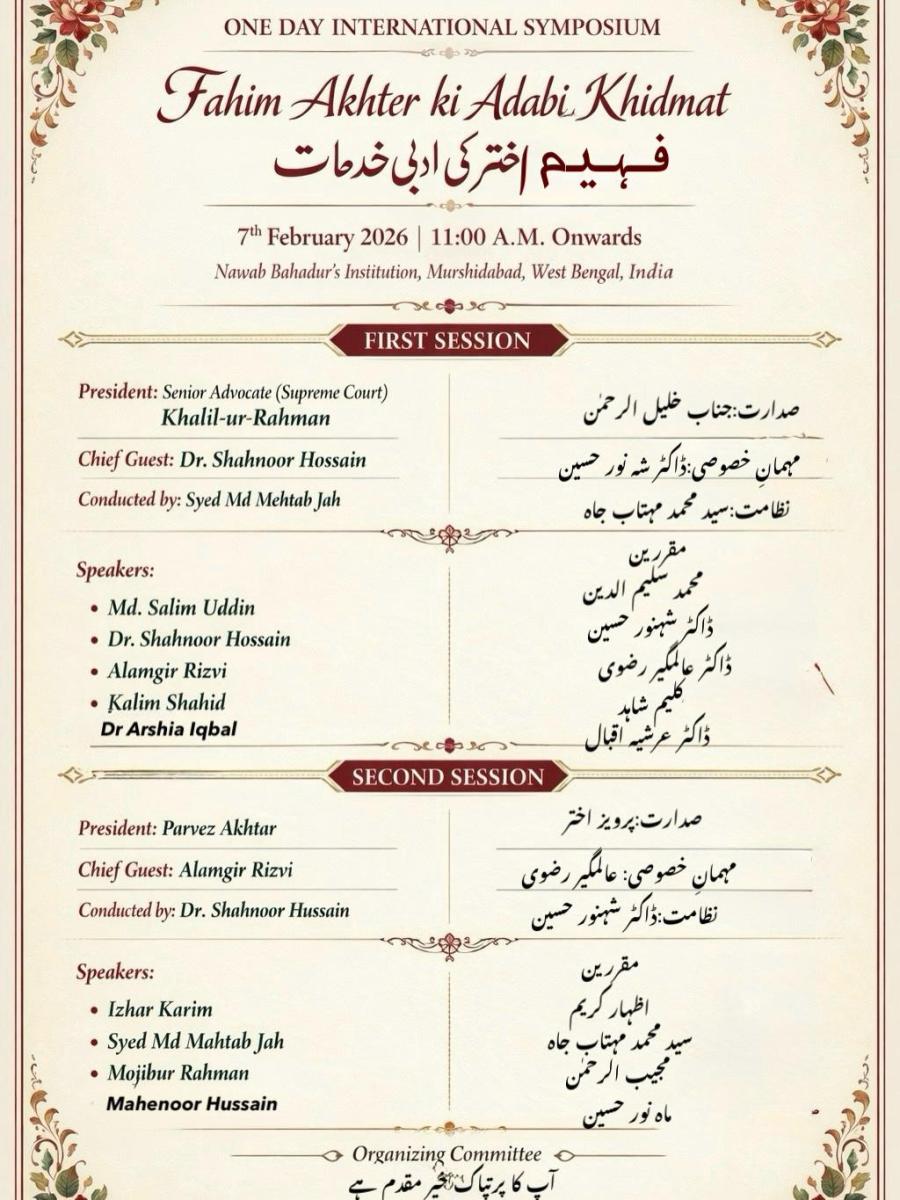 ONE DAY INTERNATIONAL SYMPOSIUM
Fahim Akhter ki Adabi Khidmat
فہیم اختر کی ادبی خدمات
7th February 2026 | 11:00 A.M. Onwards
Nawab Bahadur's Institution, Murshidabad, West Bengal, India
FIRST SESSION
President: Senior Advocate (Supreme Court)
Khalil-ur-Rahman
صدارت:جناب خلیل الرحمٰن
Chief Guest: Dr. Shahnoor Hossain
مہمانِ خصوصی:ڈاکٹر شہ نور حسین
Conducted by: Syed Md Mehtab Jah
نظامت:سید محمد مہتاب جاہ
Speakers:
• Md. Salim Uddin
• Dr. Shahnoor Hossain
• Alamgir Rizvi
• Kalim Shahid
Dr Arshia Iqbal
مقررین
محمد سلیم الدین
ڈاکٹر شہنور حسین
ڈاکٹر عالمگیر رضوی
کلیم شاہد
ڈاکٹر عرشیہ اقبال
SECOND SESSION
President: Parvez Akhtar
صدارت:پرویز اختر
Chief Guest: Alamgir Rizvi
مہمانِ خصوصی: عالمگیر رضوی
Conducted by: Dr. Shahnoor Hussain
نظامت:ڈاکٹر شہنور حسین
Speakers:
• Izhar Karim
• Syed Md Mahtab Jah
• Mojibur Rahman
Mahenoor Hussain
مقررین
اظہار کریم
سید محمد مہتاب جاہ
مجیب الرحمٰن
ماہ نور حسین
Organizing Committee
آپ کا پرتپاک خیر مقدم ہے